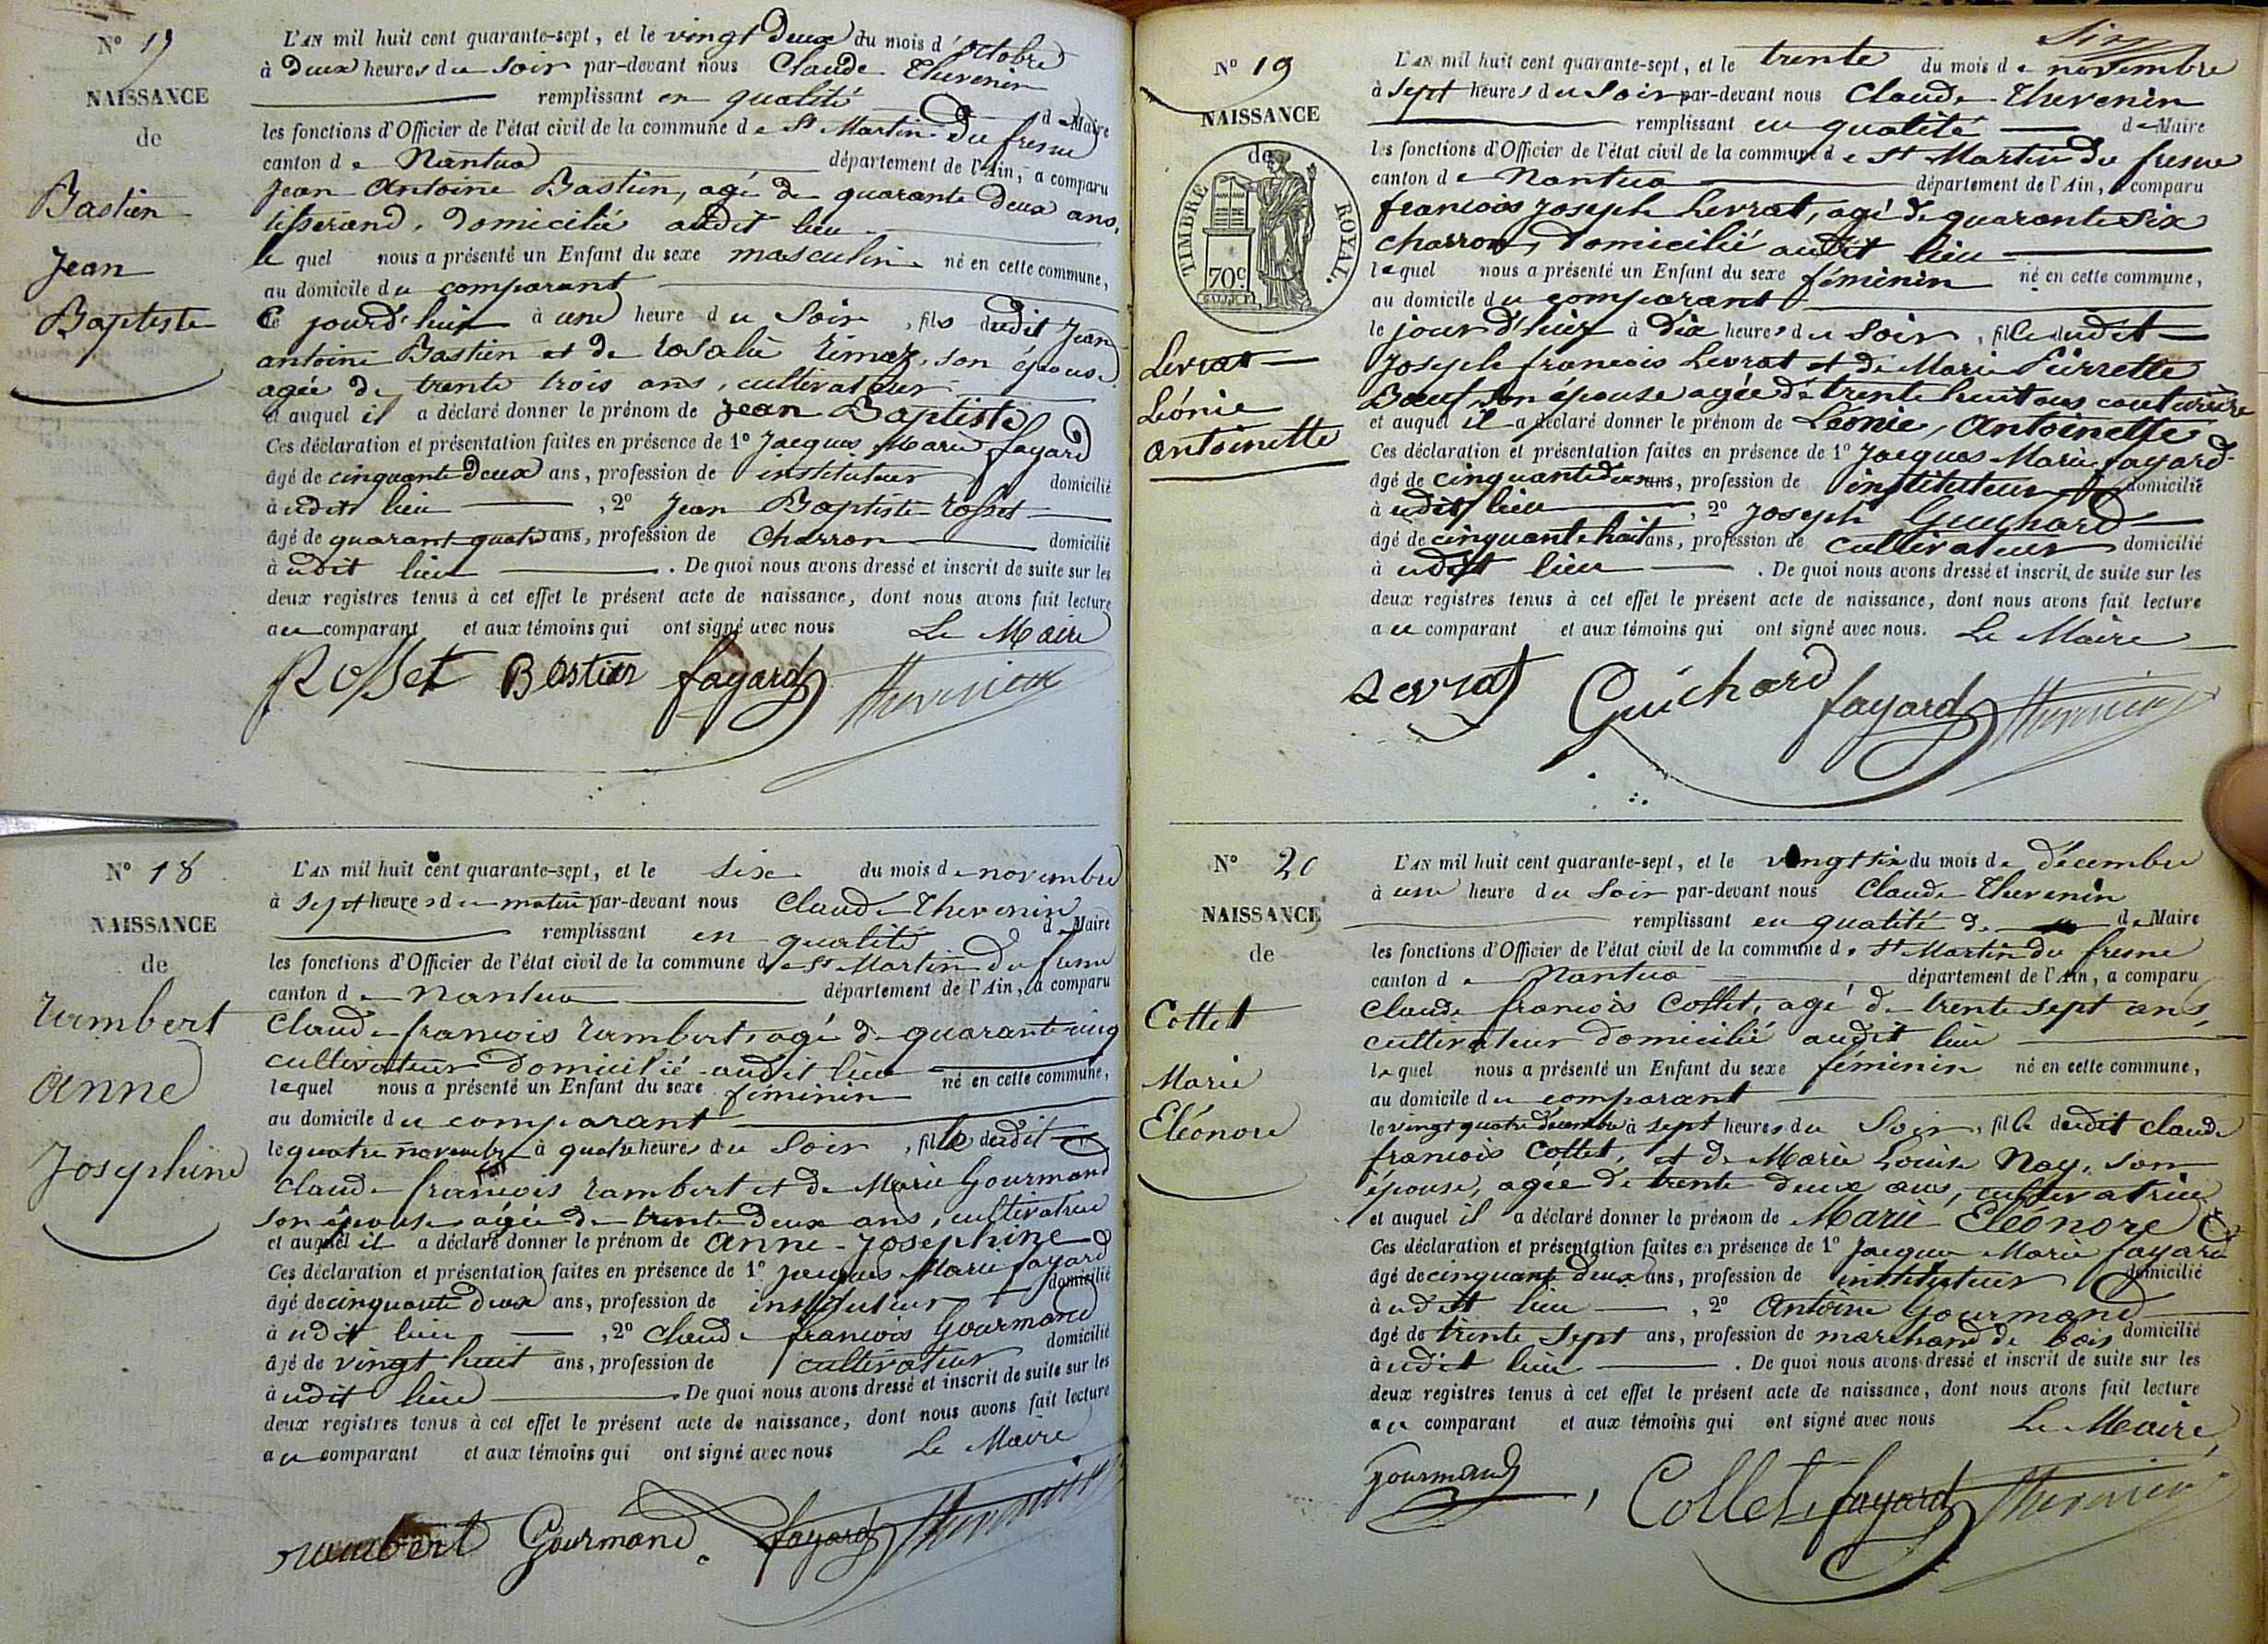 N° 17
NAISSANCE
de
Bastien
Jean
Baptiste
L'AN mil huit cent quarante-sept, et le vingt deux du mois d'octobre
à deux heures du soir par-devant nous Claude Thevenin
remplissant en qualité de Maire
les fonctions d'Officier de l'état civil de la commune de St Martin du fresne
canton de Nantua département de l'Ain, a comparu
Jean Antoine Bastien, agé de quarante deux ans,
tisserand, domicilié audit lieu
le quel nous a présenté un Enfant du sexe masculin né en cette commune,
au domicile du comparant
Ce jourd'huit à une heure du soir, fils dudit Jean
antoine Bastien et de rosalie rimaz, son épouse
agée de trente trois ans, cultivateur
et auquel il a déclaré donner le prénom de Jean Baptiste
Ces déclaration et présentation faites en présence de 1° Jacques Marie fayard
âgé de cinquante deux ans, profession de instituteur domicilié
à udit lieu, 2° Jean Baptiste rosset
âgé de quarante quatre ans, profession de Charron domicilié
à udit lieu. De quoi nous avons dressé et inscrit de suite sur les
deux registres tenus à cet effet le présent acte de naissance, dont nous avons fait lecture
au comparant et aux témoins qui ont signé avec nous Le Maire
Rosset Bastien fayard Thevenin
N° 18
NAISSANCE
de
rambert
anne
Josephine
L'AN mil huit cent quarante-sept, et le six du mois de novembre
à sept heures du matin par-devant nous Claude Thevenin
remplissant en qualité de Maire
les fonctions d'Officier de l'état civil de la commune de St Martin du fresne
canton de Nantua département de l'Ain, a comparu
Claude francois rambert, agé de quarante cinq
cultivateur domicilié audit lieu
lequel nous a présenté un Enfant du sexe féminin né en cette commune,
au domicile du comparant
le quatre novembre à quatre heures du soir, fille dudit
Claude francois rambert et de Marie Gourmand
son épouse agée de trente deux ans, cultivatrice
et auquel il a déclaré donner le prénom de anne Josephine
Ces déclaration et présentation faites en présence de 1° Jacques Marie fayard
âgé de cinquante deux ans, profession de instituteur domicilié
à udit lieu, 2° Claude francois Gourmand
âgé de vingt huit ans, profession de cultivateur domicilié
à udit lieu. De quoi nous avons dressé et inscrit de suite sur les
deux registres tenus à cet effet le présent acte de naissance, dont nous avons fait lecture
au comparant et aux témoins qui ont signé avec nous Le Maire
rambert Gourmand fayard Thevenin
N° 19
NAISSANCE
de
TIMBRE ROYAL.
70c
Levrat
Léonie
antoinette
L'AN mil huit cent quarante-sept, et le trente du mois de novembre
à sept heures du soir par-devant nous Claude Thevenin
remplissant en qualité de Maire
les fonctions d'Officier de l'état civil de la commune de St Martin du fresne
canton de Nantua département de l'Ain, a comparu
francois Joseph Levrat, agé de quarante six
charron, domicilié audit lieu
lequel nous a présenté un Enfant du sexe féminin né en cette commune,
au domicile du comparant
le jour d'hier à dix heures du soir, fille dudit
Joseph francois Levrat et de Marie Pierrette
Bœuf son épouse agée de trente huit ans couturière
et auquel il a déclaré donner le prénom de Léonie, Antoinette
Ces déclaration et présentation faites en présence de 1° Jacques Marie fayard
âgé de cinquante deux ans, profession de instituteur domicilié
à udit lieu, 2° Joseph Guichard
âgé de cinquante huit ans, profession de cultivateur domicilié
à udit lieu. De quoi nous avons dressé et inscrit de suite sur les
deux registres tenus à cet effet le présent acte de naissance, dont nous avons fait lecture
au comparant et aux témoins qui ont signé avec nous. Le Maire
Levrat Guichard fayard Thevenin
N° 20
NAISSANCE
de
Collet
Marie
Eléonore
L'AN mil huit cent quarante-sept, et le vingt six du mois de décembre
à une heure du soir par-devant nous Claude Thevenin
remplissant en qualité de de Maire
les fonctions d'Officier de l'état civil de la commune de St Martin du fresne
canton de Nantua département de l'Ain, a comparu
Claude francois Collet, agé de trente sept ans,
cultivateur domicilié audit lieu
lequel nous a présenté un Enfant du sexe féminin né en cette commune,
au domicile du comparant
le vingt quatre décembre à sept heures du soir, fille dudit claude
francois Collet, et de Marie Louise Nay, son
épouse, agée de trente deux ans, cultivatrice
et auquel il a déclaré donner le prénom de Marie Eléonore
Ces déclaration et présentation faites en présence de 1° Jacques Marie fayard
âgé de cinquante deux ans, profession de instituteur domicilié
à udit lieu, 2° Antoine Gourmand
âgé de trente sept ans, profession de marchand de bois domicilié
à udit lieu. De quoi nous avons dressé et inscrit de suite sur les
deux registres tenus à cet effet le présent acte de naissance, dont nous avons fait lecture
au comparant et aux témoins qui ont signé avec nous Le Maire,
gourmand, Collet fayard Thevenin